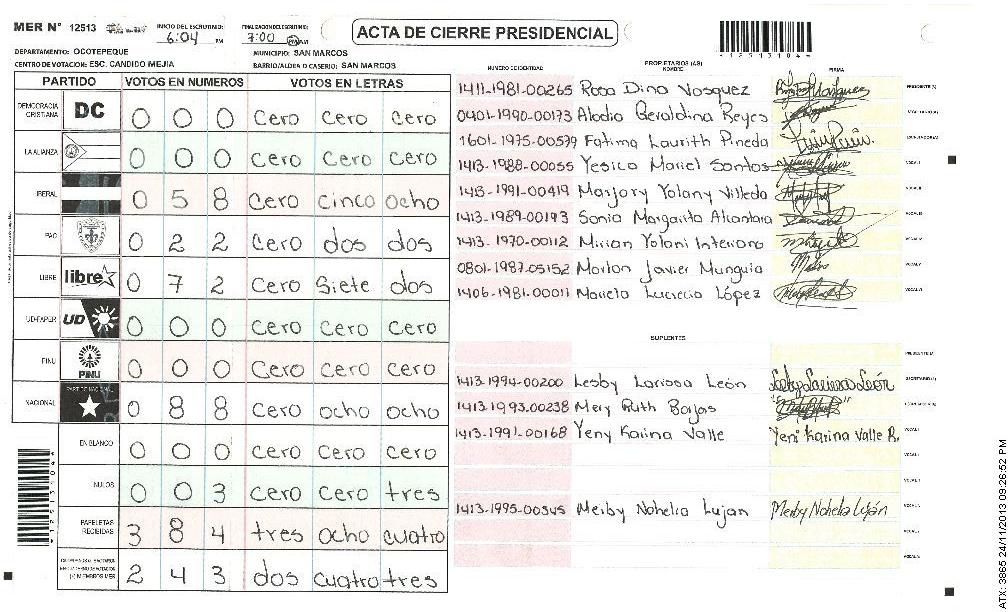 MER N° 12513
INICIO DEL ESCRUTINIO: 6:04 PM
FINALIZACION DEL ESCRUTINIO: 7:00 PM
ACTA DE CIERRE PRESIDENCIAL
DEPARTAMENTO: OCOTEPEQUE
MUNICIPIO: SAN MARCOS
CENTRO DE VOTACION: ESC. CANDIDO MEJIA
BARRIO/ALDEA O CASERIO: SAN MARCOS
PARTIDO VOTOS EN NUMEROS VOTOS EN LETRAS
DEMOCRACIA CRISTIANA DC 0 0 0 cero cero cero
LA ALIANZA 0 0 0 cero cero cero
IBERAL 0 5 8 cero cinco ocho
PAC 0 2 2 cero dos dos
LIBRE libre 0 7 2 cero Siete dos
UD-FAPER UD 0 0 0 cero cero cero
PINU PINU 0 0 0 cero cero cero
NACIONAL PARTIDO NACIONAL 0 8 8 cero ocho ocho
EN BLANCO 0 0 0 cero cero cero
NULOS 0 0 3 cero cero tres
PAPELETAS RECIBIDAS 3 8 4 tres ocho cuatro
(+) MIEMBROS MER 2 4 3 dos cuatro tres
NUMERO DE IDENTIDAD PROPIETARIOS (AS) NOMBRE FIRMA
1411-1981-00265 Rosa Dina Vasquez PRESIDENTE (A)
0401-1990-00173 Alodia Geraldina Reyes
1601-1975-00579 Fatima Laurith Pineda
1413-1988-00055 Yesica Mariel Santos VOCAL I
1413-1991-00419 Marjory Yolany Villeda VOCAL II
1413-1989-00193 Sonia Margarita Alcantara VOCAL III
1413-1970-00112 Mirian Yolani Interiano VOCAL IV
0801-1987-05152 Marlon Javier Munguia VOCAL V
1406-1981-00011 Marieta Lucrecia López VOCAL VI
SUPLENTES
PRESIDENTE (A)
1413-1994-00200 Lesby Larissa León Lesby Larissa León SECRETARIO (A)
1413-1993-00238 Mery Ruth Borjas
1413-1991-00168 Yeny Karina Valle Yeni Karina Valle R. VOCAL I
1413-1995-00345 Merby Nohelia Lujan Merby Nohelia Luján
*12513104*
*12513104*
ATX: 3865 24/11/2013 09:26:52 PM